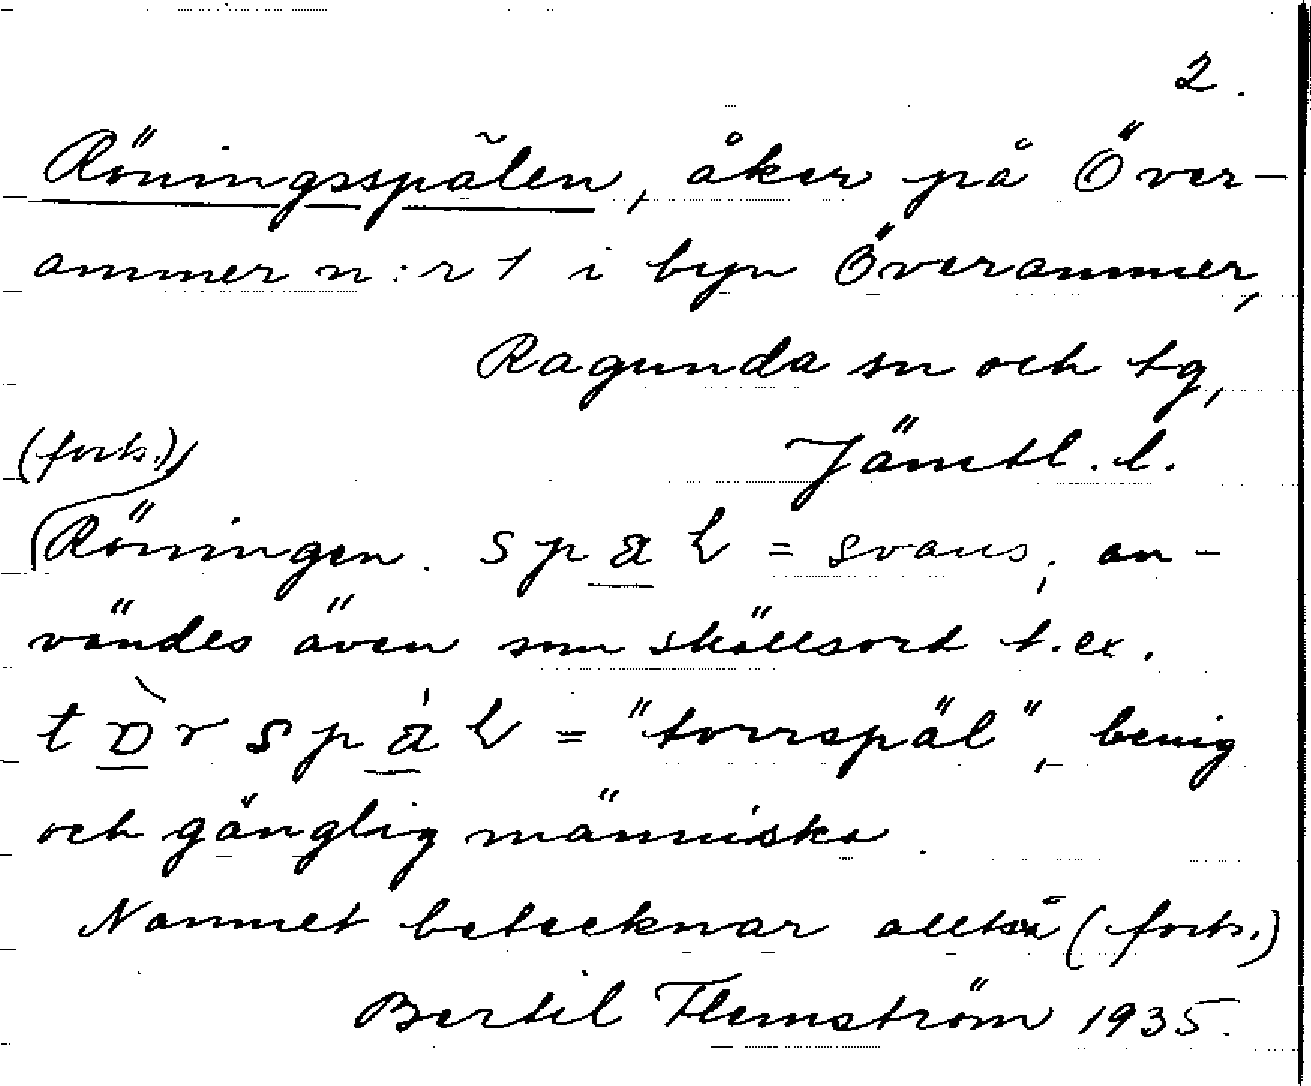 2.
Röningsspälen, åker på Över-
ammer n:r 1 i byn Överammer,
Ragunda sn och tg,
Jämtl. l.
(forts.)
Röningen. spaḷ = svans; an-
vändes även som skällsord t.ex.
tòrspáḷ = "torrspäl", benig
och gänglig människa.
Namnet betecknar alltså (forts.)
Bertil Flemström 1935.